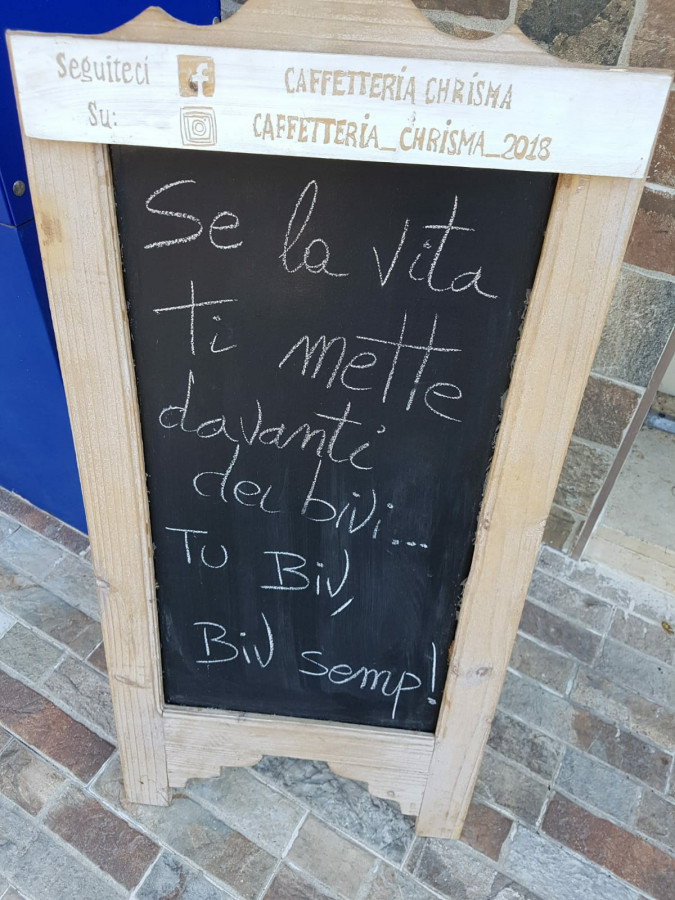 Seguiteci CAFFETTERIA CHRISMA
Su: CAFFETTERIA_CHRISMA_2018
Se la vita
ti mette
davanti
dei bivi...
TU BIV,
BIV semp!